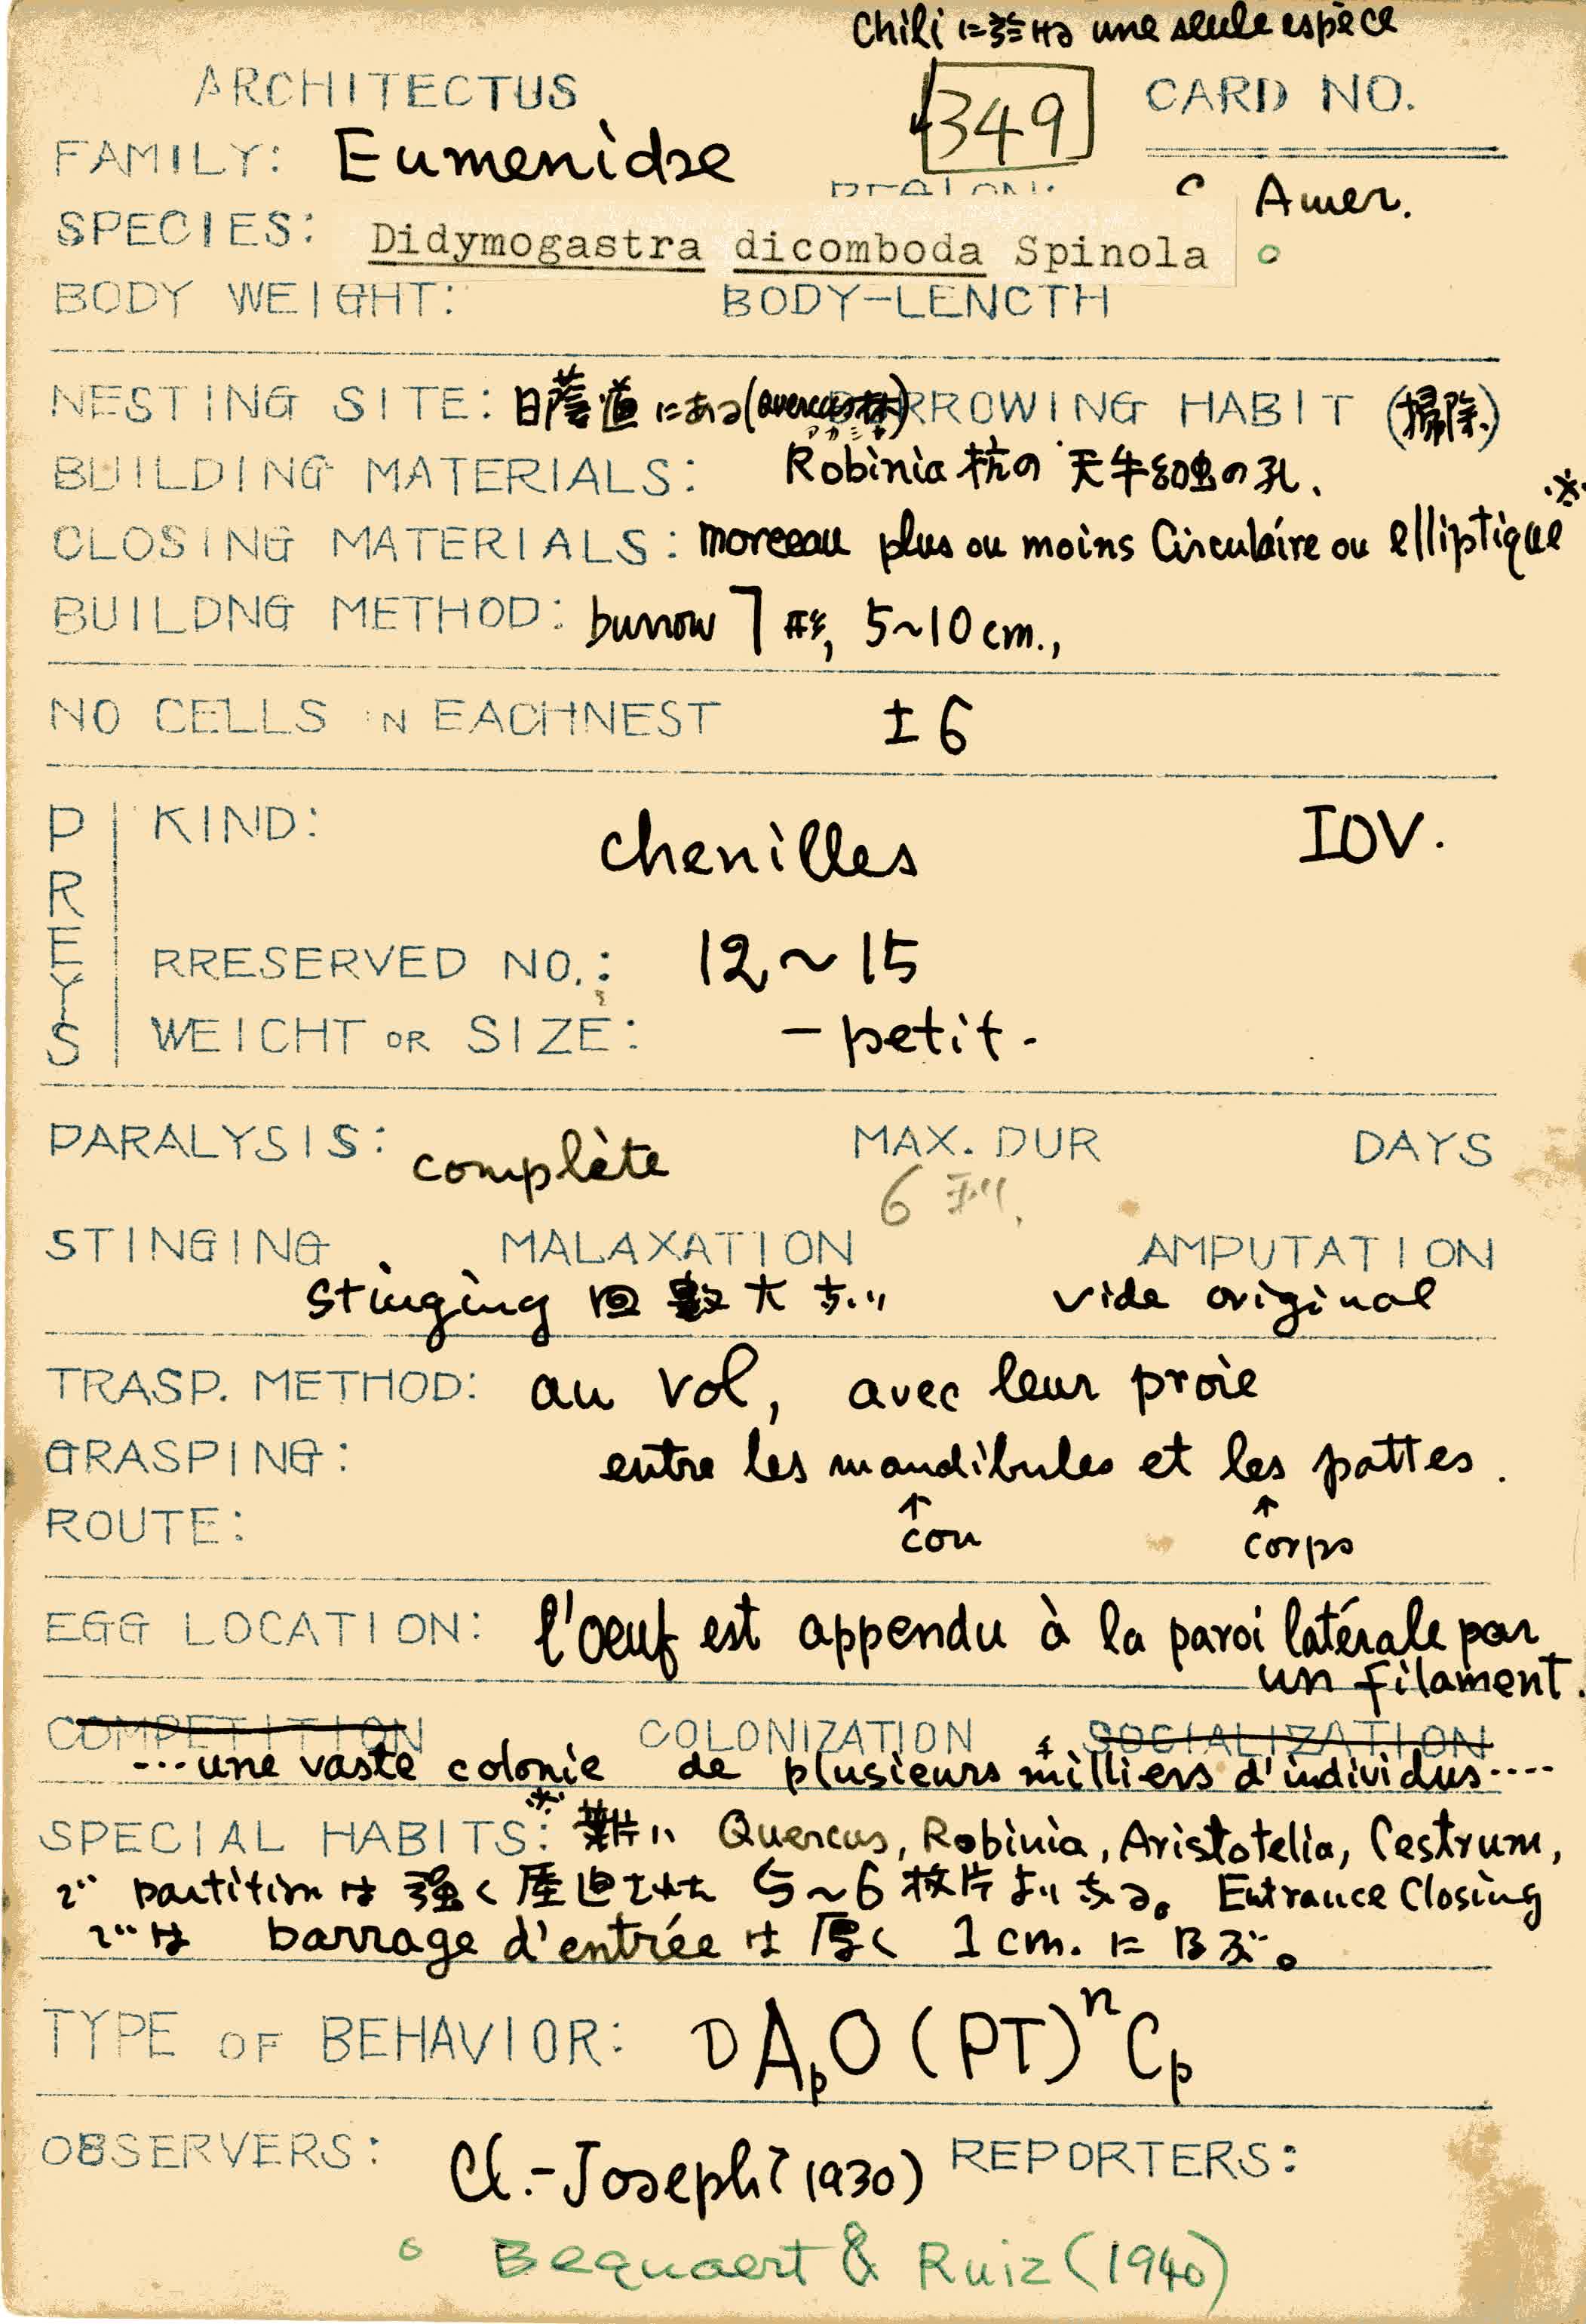 Chili に於ける une seule espèce
ARCHITECTUS 349 CARD NO.
FAMILY: Eumenidae
REGION: Amer.
SPECIES: Didymogastra dicomboda Spinola
BODY WEIGHT: BODY-LENCTH
NESTING SITE: 日蔭道にある(Quercus林) RROWING HABIT (掃除)
BUILDING MATERIALS: Robinia 杭の天牛幼虫の孔、
CLOSING MATERIALS: morceau plus ou moins Circulaire ou elliptique※
BUILDNG METHOD: burrow ㄱ形, 5~10cm.,
NO CELLS IN EACHNEST ±6
PREYS
KIND: chenilles IOV.
RRESERVED NO.: 12~15
WEICHT OR SIZE: -petit-
PARALYSIS: complète MAX. DUR DAYS
STINGING MALAXATION AMPUTATION
stinging 回数大ちい vide original
TRASP. METHOD: au vol, avec leur proie
GRASPING: entre les mandibules et les pattes.
ROUTE: ↑cou ↑corps
EGG LOCATION: l'oeuf est appendu à la paroi latérale par
un filament.
COMPETITION COLONIZATION SOCIALIZATION
...une vaste colonie de plusieurs milliers d'individus....
SPECIAL HABITS: ※葉片は Quercus, Robinia, Aristotelia, Cestrum,
で partition は強く圧迫された 5~6枚片よりなる。 Entrance Closing
では barrage d'entrée は厚く 1cm. に及ぶ。
TYPE OF BEHAVIOR: DApO(PT)ⁿCp
OBSERVERS: Cl.-Joseph(1930) REPORTERS:
Bequaert & Ruiz (1940)